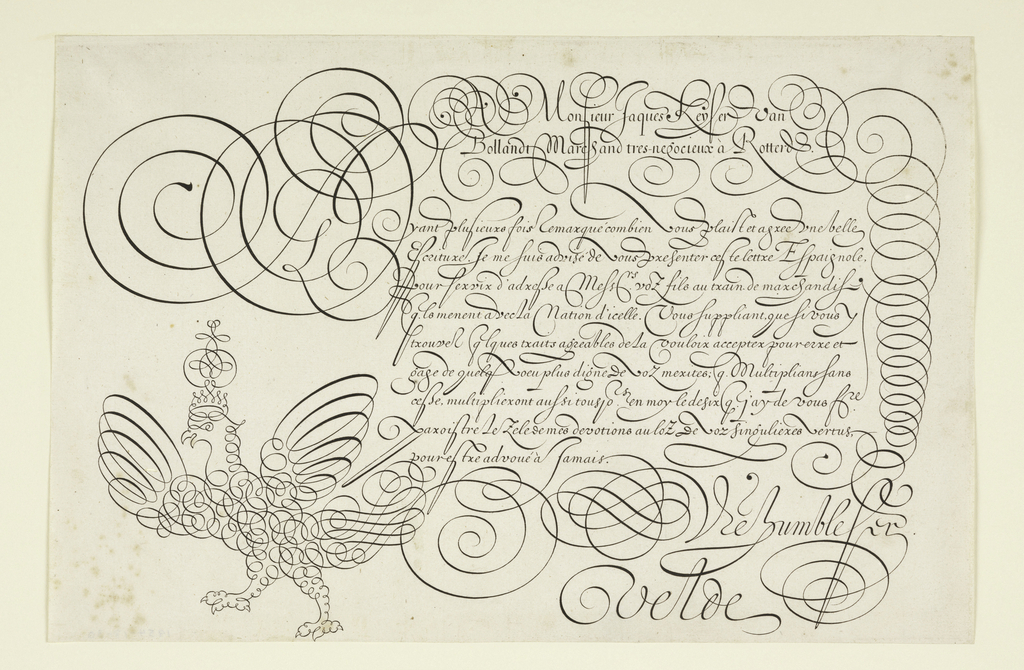 A Monsieur Jaques Keyser van
Bollandt Marchand tres-negocieux à Rotterd.
Ayant plusieurs fois remarqué combien vous plaist et agree une belle
Escriture, Je me suis advisé de vous presenter ceste lettre Espaignole.
Pour servir d'adresse a Mess.rs voz fils au train de marchandise
qu'ils menent avec la Nation d'icelle. Vous suppliant, que si vous y
trouvez qlques traits agreables de la vouloir accepter pour erre et
gage de quelq veu plus digne de voz merites; q. Multiplians sans
cesse, multiplieront aussi tousjo.rs en moy le desir q j'ay de vous f.re
Paroistre le zele de mes devotions au loz de voz singulieres vertus,
pour estre advoué à Jamais.
Vre humble ser.
Velde